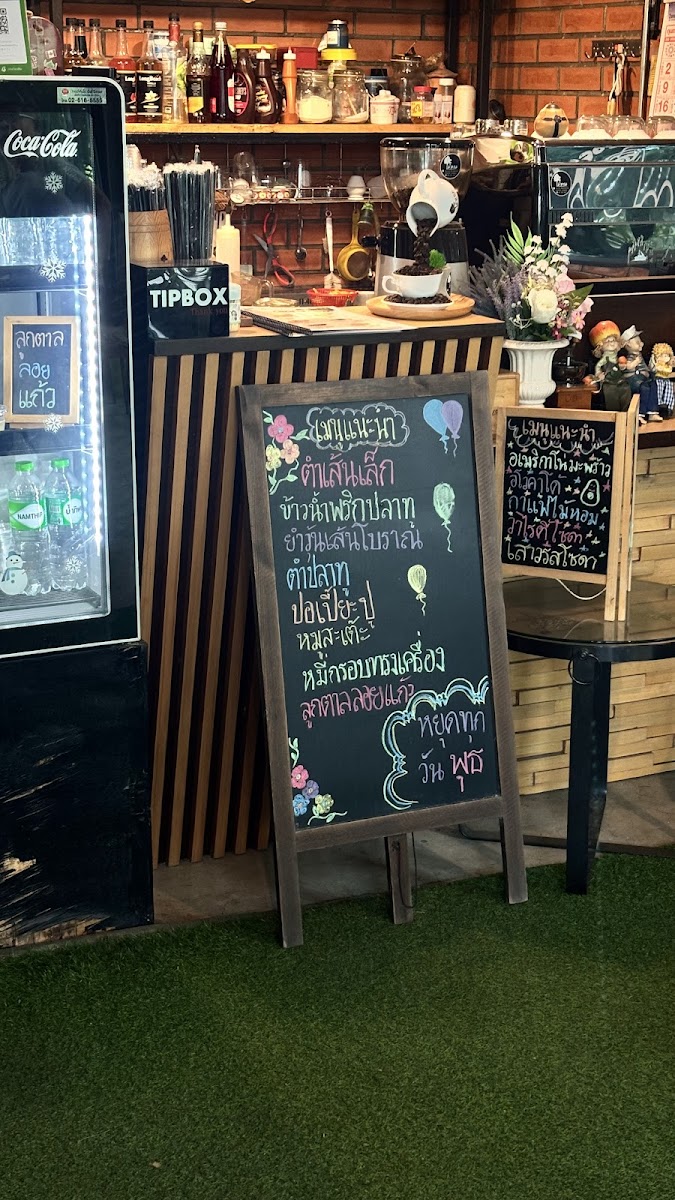 Coca-Cola
02-616-6555
ลูกตาล
ลอย
แก้ว
NAMTHIP
น้ำทิพย์
TIPBOX
เมนูแนะนำ
ตำเส้นเล็ก
ข้าวน้ำพริกปลาทู
ยำวุ้นเส้นโบราณ
ตำปลาทู
ปอเปี๊ยะปู
หมูสะเต๊ะ
หมี่กรอบทรงเครื่อง
ลูกตาลลอยแก้ว
หยุดทุก
วัน พุธ
เมนูแนะนำ
อเมริกาโน่มะพร้าว
อโวคาโด้
กาแฟไม่หอม
เสาวรสโซดา
2
9
16